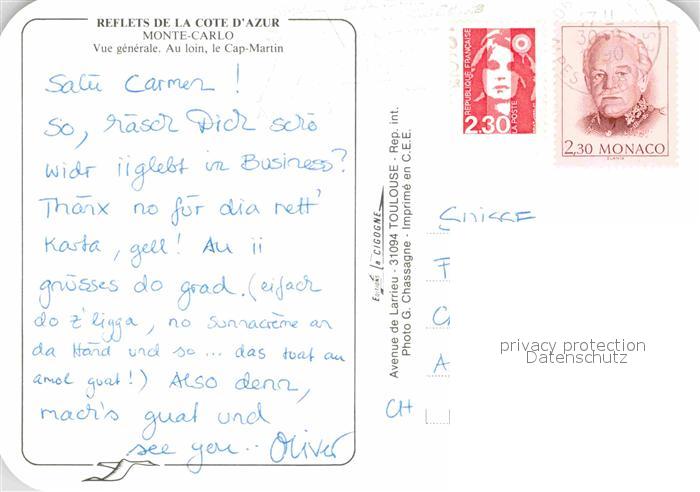 REFLETS DE LA COTE D'AZUR
MONTE-CARLO
Vue générale. Au loin, le Cap-Martin
Salü Carmen !
So, häsch Dich scho
widr iiglebt in Business?
Thanx no für dia nett'
Karta, gell! Au ii
grüsses do grad. (eifach
do z'ligga, no sunnacrème an
da Händ und so ... das tuat au
amol guat!) Also denn,
mach's guat und
see you.. Oliver
Editions La CIGOGNE
Avenue de Larrieu - 31094 TOULOUSE - Rep. int.
Photo G. Chassagne - Imprimé en C.E.E.
REPUBLIQUE FRANÇAISE
2,30
LA POSTE
2,30 MONACO
SLANIA
F
G
A
CH
privacy protection
Datenschutz